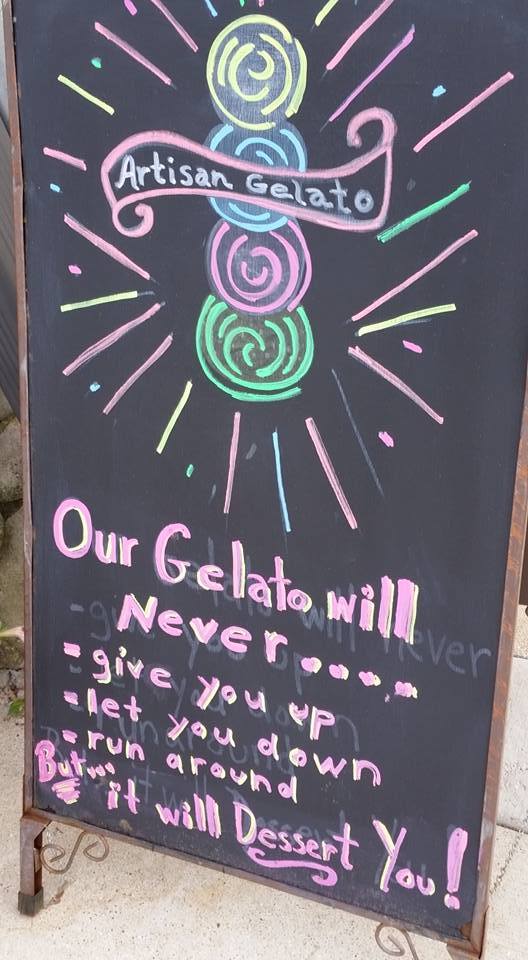 Artisan Gelato
Our Gelato will
Never....
- give you up
- let you down
- run around
But... it will Dessert You!